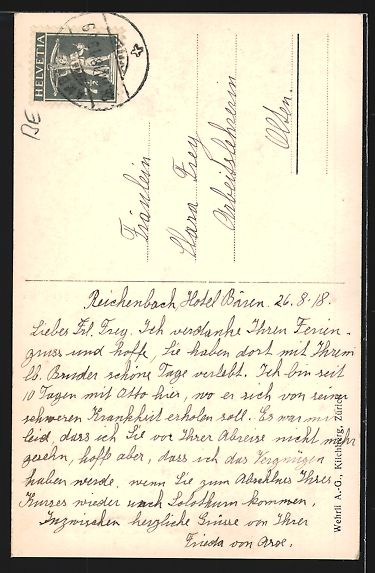 HELVETIA
BE
Fräulein
Clara Frey
Arbeitslehrerin
Olten.
Reichenbach, Hotel Bären. 26.8.18.
Liebes Frl. Frey. Ich verdanke Ihren Ferien-
gruss und hoffe, Sie haben dort mit Ihrem
lb. Bruder schöne Tage verlebt. Ich bin seit
10 Tagen mit Otto hier, wo er sich von seiner
schweren Krankheit erholen soll. Es war mir
leid, dass ich Sie vor Ihrer Abreise nicht mehr
gesehn, hoffe aber, dass ich das Vergnügen
haben werde, wenn Sie zum Abschluss Ihres
Kurses wieder nach Solothurn kommen.
Inzwischen herzliche Grüsse von Ihrer
Frieda von Arx.
Wehrli A.-G., Kilchberg, Zürich